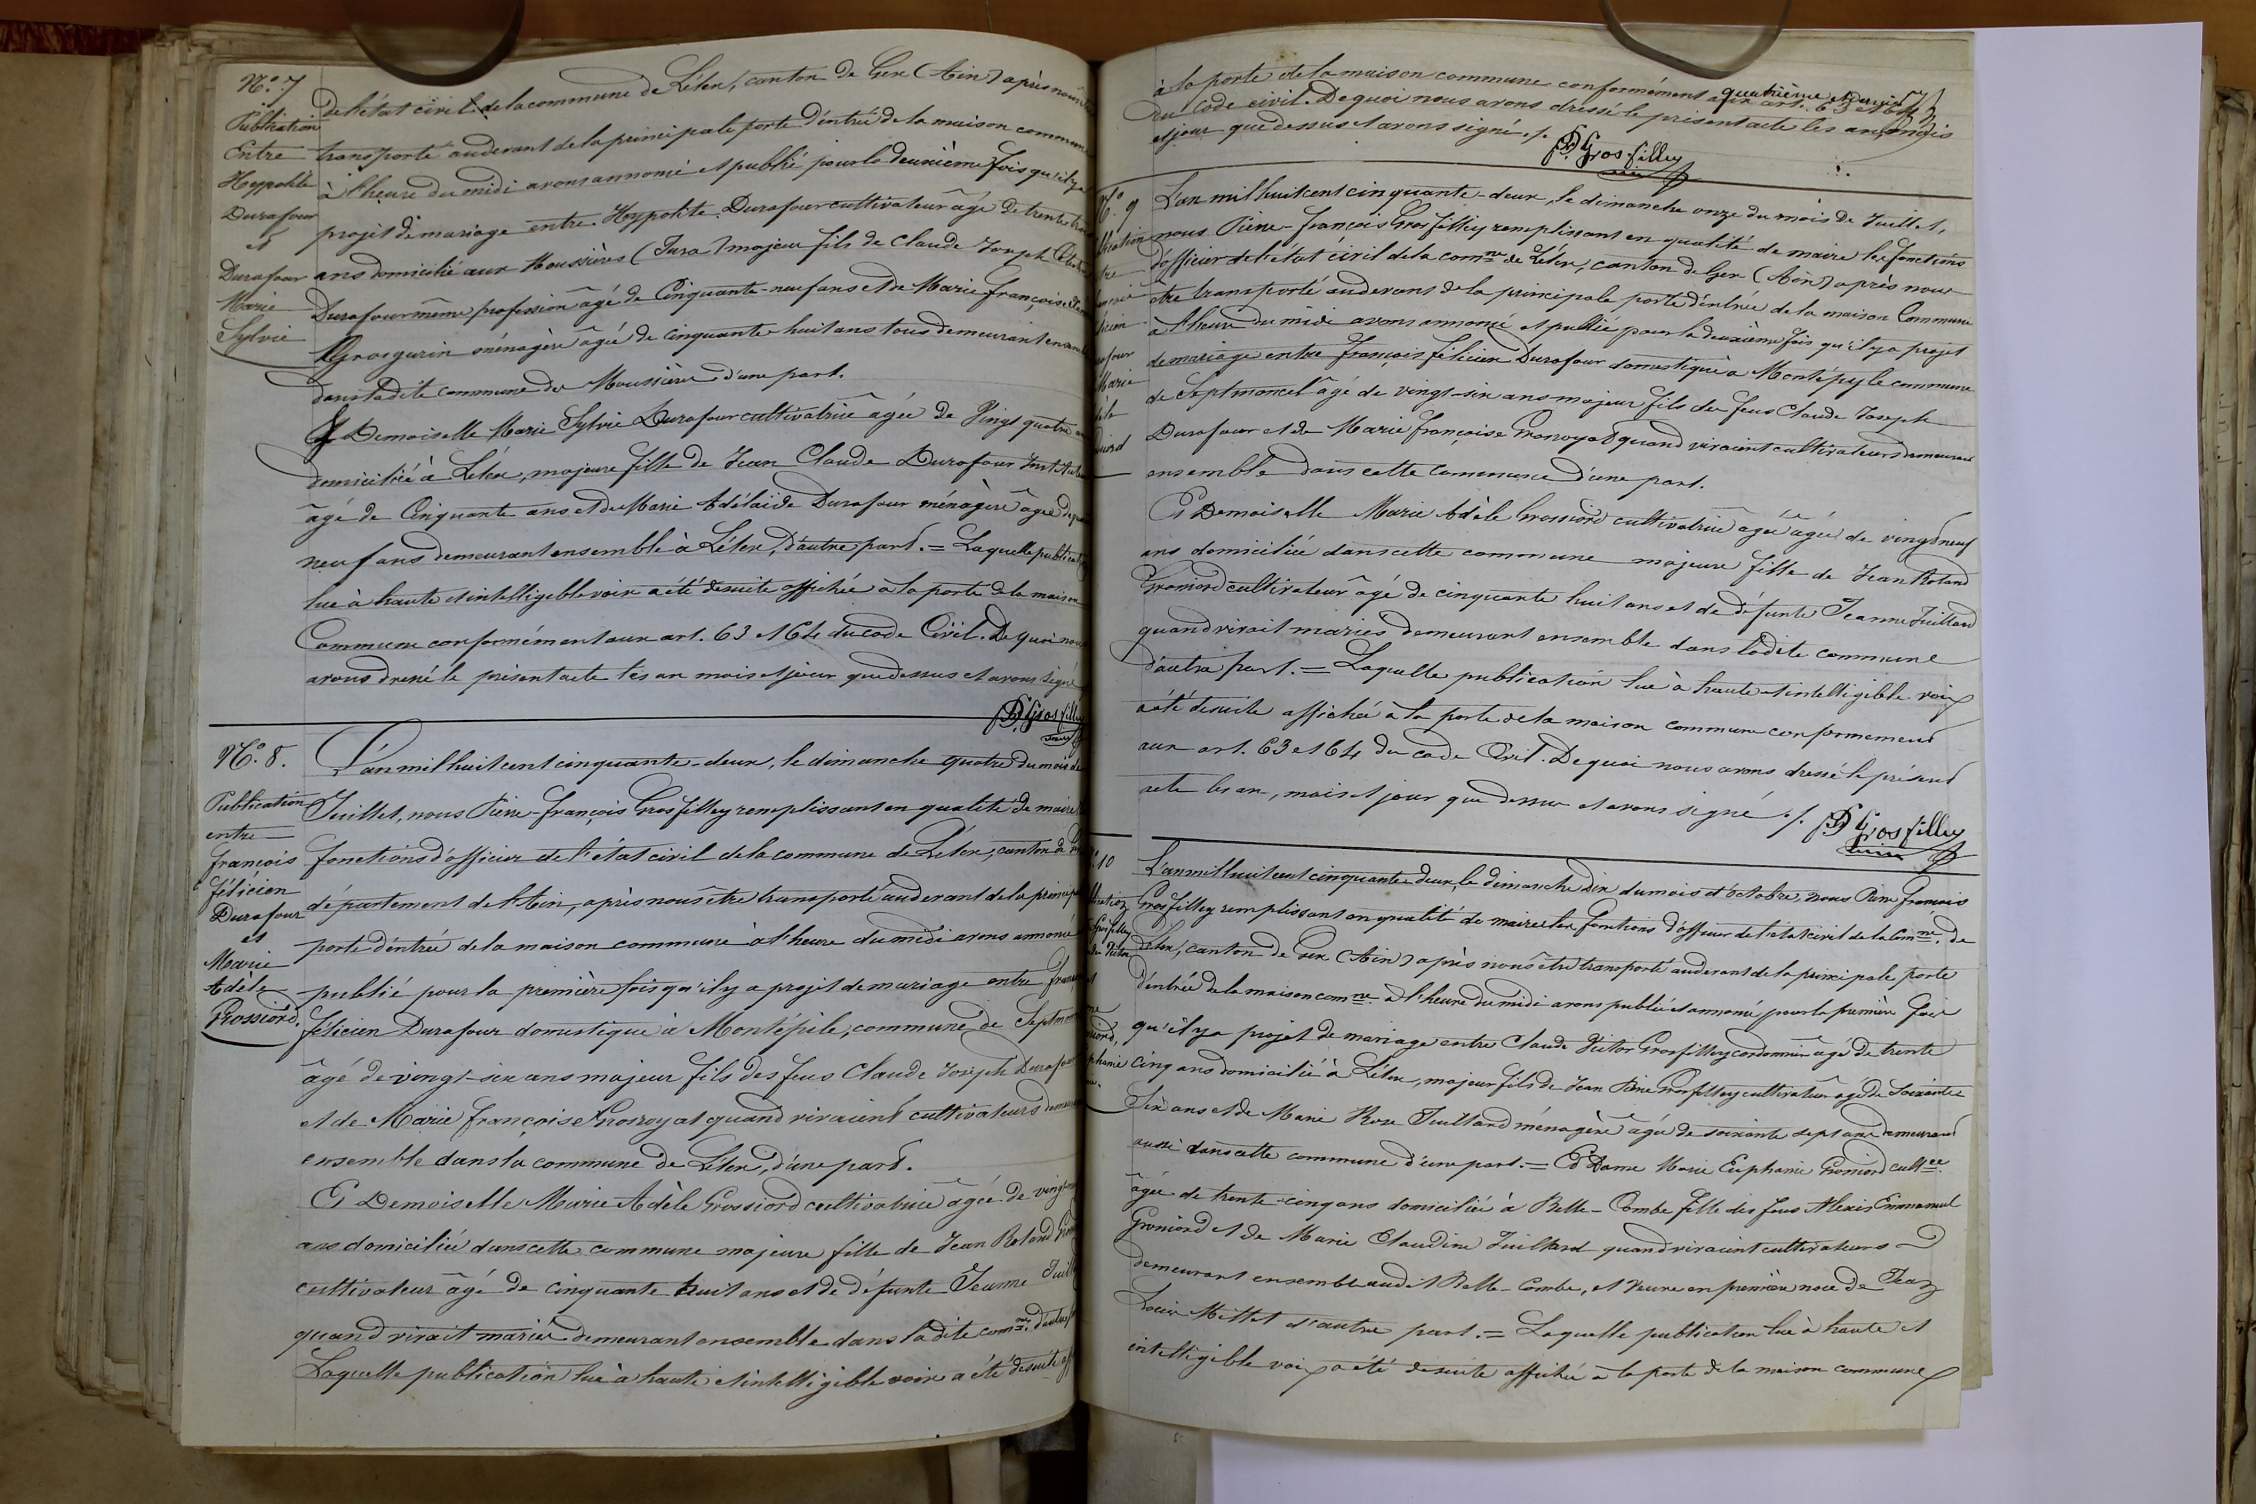 N.o 7
Publication
Entre
Hyppolite
Durafour
et
Durafour
Marie
Sylvie
de l'état civil de la commune de Lélex, canton de Gex (Ain) après nous
transporté audevant de la principale porte d'entrée de la maison commune
à l'heure du midi avons annoncé et publié pour la deuxième fois qu'il y a
projet de mariage entre Hyppolite Durafour cultivateur âgé de trente
ans domicilié aux Moussières (Jura) majeur fils de Claude Joseph
Durafour même profession âgé de Cinquante-neuf ans et de Marie françoise
Grosgurin ménagère âgée de cinquante-huit ans tous demeurant
dans ladite commune des Moussières d'une part.
Et Demoiselle Marie Sylvie Durafour cultivatrice âgée de Vingt quatre
domiciliée à Lélex, majeure fille de Jean Claude Durafour
âgé de Cinquante ans et de Marie Adélaïde Durafour ménagère âgée de
neuf ans demeurant ensemble à Lélex, d'autre part. = Laquelle
lue à haute et intelligible voix a été desuite affichée à la porte de la maison
Commune conformément aux art. 63 et 64 du code Civil. De quoi nous
avons dressé le présent acte les an mois et jour que dessus et avons signé
P. F. Grosfilley
N.o 8.
Publication
entre
françois
félicien
Durafour
et
Marie
Adèle
Grossiord.
L'an mil huit cent cinquante-deux, le dimanche quatre du mois de
Juillet, nous Pierre-françois Grosfilley remplissant en qualité de maire
fonctions d'officier de l'état civil de la commune de Lélex, canton de
département de l'Ain, après nous être transporté audevant de la
porte d'entrée de la maison commune à l'heure du midi avons annoncé
publié pour la première fois qu'il y a projet de mariage entre
félicien Durafour domestique à Montépile, commune de
âgé de vingt-six ans majeur fils des feus Claude Joseph Durafour
et de Marie françoise Grosroyat quand vivaient cultivateurs
ensemble dans la commune de Lélex, d'une part.
Et Demoiselle Marie Adèle Grossiord cultivatrice âgée de
ans domiciliée dans cette commune majeure fille de Jean Roland
cultivateur âgé de cinquante huit ans et de défunte Jeanne
quand vivait mariés demeurant ensemble dans ladite com.ne
Laquelle publication lue à haute et intelligible voix a été desuite
à la porte de la maison commune conformément aux art. 63 et 64
quatrième et dernier
du Code civil. De quoi nous avons dressé le présent acte les an, mois
et jour que dessus et avons signé ./.
P. F. Grosfilley
N.o 9
L'an mil huit cent cinquante-deux, le dimanche onze du mois de Juillet,
nous Pierre-françois Grosfilley remplissant en qualité de maire les fonctions
d'officier de l'état civil de la com.ne de Lélex, canton de Gex (Ain) après nous
être transporté audevant de la principale porte d'entrée de la maison Commune
à l'heure du midi avons annoncé et publié pour la deuxième fois qu'il y a projet
de mariage entre françois félicien Durafour domestique à Montépile commune
de Septmoncel âgé de vingt-six ans majeur fils des feus Claude Joseph
Durafour et de Marie françoise Grosroyat quand vivaient cultivateurs demeurant
ensemble dans cette commune d'une part.
Et Demoiselle Marie Adèle Grossiord cultivatrice âgée âgée de vingt neuf
ans domiciliée dans cette commune majeure fille de Jean Roland
Grossiord cultivateur âgé de cinquante huit ans et de défunte Jeanne Juilland
quand vivait mariés demeurant ensemble dans ladite commune
d'autre part. = Laquelle publication lue à haute et intelligible voix
a été desuite affichée à la porte de la maison commune conformément
aux art. 63 et 64 du code Civil. De quoi nous avons dressé le présent
acte les an, mois et jour que dessus et avons signé ./.
P. F. Grosfilley
10
L'an mil huit cent cinquante deux, le dimanche dix du mois d'octobre, nous Pierre françois
Grosfilley remplissant en qualité de maire les fonctions d'officier de l'état civil de la Com.ne de
Lélex, canton de Gex (Ain) après nous être transporté audevant de la principale porte
d'entrée de la maison com.ne à l'heure du midi avons publié et annoncé pour la première fois
qu'il y a projet de mariage entre Claude Victor Grosfilley cordonnier âgé de trente
cinq ans domicilié à Lélex, majeur fils de Jean Pierre Grosfilley cultivateur âgé de soixante
six ans et de Marie Rose Juilland ménagère âgée de soixante sept ans demeurant
aussi dans cette commune d'une part. = Et Dame Marie Euphanie Grossiord cult.ce
âgée de trente-cinq ans domiciliée à Belle-Combe fille des feus Alexis Emmanuel
Grossiord et de Marie Claudine Juilland quand vivaient cultivateurs
demeurant ensemble audit Belle-Combe, et veuve en première noce de Jean
Louis Millet d'autre part. = Laquelle publication lue à haute et
intelligible voix a été desuite affichée à la porte de la maison commune